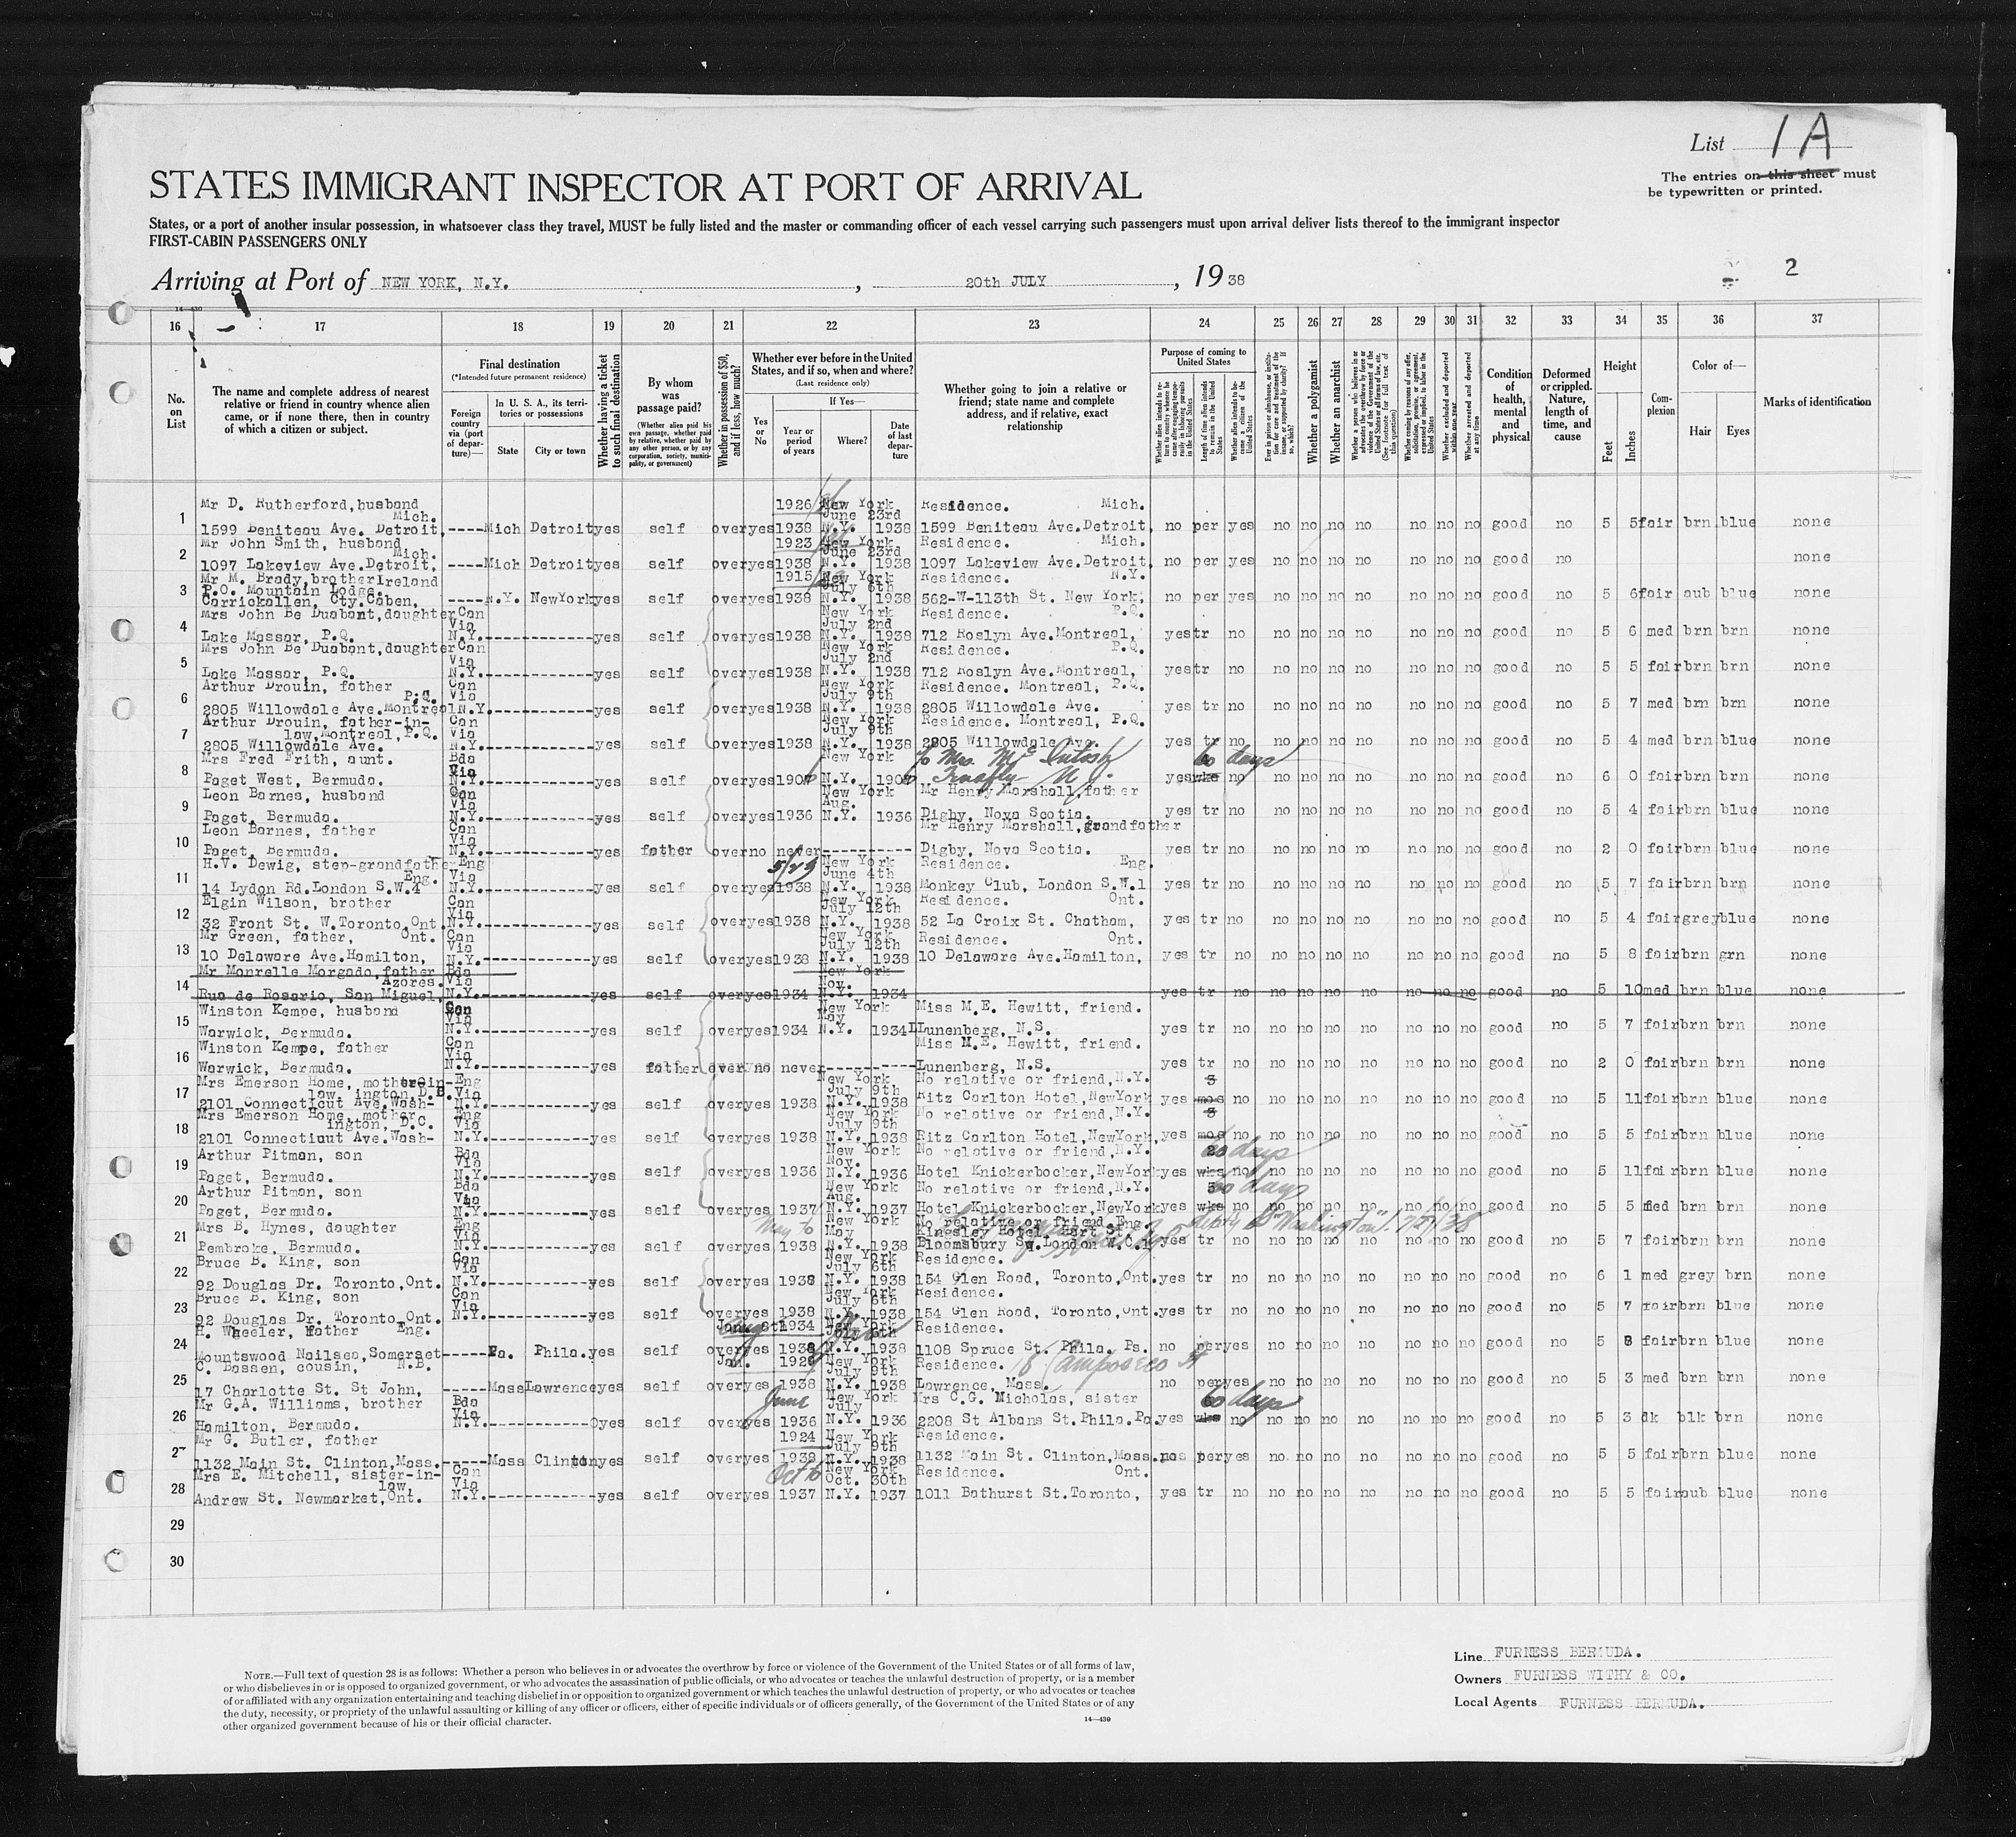 List 1 A
The entries on this sheet must
be typewritten or printed.
STATES IMMIGRANT INSPECTOR AT PORT OF ARRIVAL
States, or a port of another insular possession, in whatsoever class they travel, MUST be fully listed and the master or commanding officer of each vessel carrying such passengers must upon arrival deliver lists thereof to the immigrant inspector
FIRST-CABIN PASSENGERS ONLY
Arriving at Port of NEW YORK, N.Y. , 20th JULY , 19 38
2
14-430
16 17 18 19 20 21 22 23 24 25 26 27 28 29 30 31 32 33 34 35 36 37
No. on List
The name and complete address of nearest relative or friend in country whence alien came, or if none there, then in country of which a citizen or subject.
Final destination
(*Intended future permanent residence)
Foreign country via (port of departure)—
In U. S. A., its territories or possessions
State City or town
Whether having a ticket to such final destination
By whom was passage paid?
(Whether alien paid his own passage, whether paid by relative, whether paid by any other person, or by any corporation, society, municipality, or government)
Whether in possession of $50, and if less, how much?
Whether ever before in the United States, and if so, when and where?
(Last residence only)
Yes or No
If Yes—
Year or period of years
Where?
Date of last departure
Whether going to join a relative or friend; state name and complete address, and if relative, exact relationship
Purpose of coming to United States
Length of time alien intends to remain in the United States
Whether alien intends to become a citizen of the United States
Whether a polygamist
Whether an anarchist
Whether arrested and deported at any time
Condition of health, mental and physical
Deformed or crippled. Nature, length of time, and cause
Height
Feet Inches
Complexion
Color of—
Hair Eyes
Marks of identification
Mr D. Rutherford, husband Mich. 1926 New York June 23rd Residence. Mich.
1 1599 Beniteau Ave. Detroit, ----Mich Detroit yes self over yes 1938 N.Y. 1938 1599 Beniteau Ave.Detroit, no per yes no no no no no no no good no 5 5 fair brn blue none
Mr John Smith, husband Mich. 1923 New York June 23rd Residence. Mich.
2 1097 Lakeview Ave.Detroit, ----Mich Detroit yes self over yes 1938 N.Y. 1938 1097 Lakeview Ave.Detroit, no per yes no no no no no no no good no none
Mr M. Brady, brother Ireland 1915 New York July 6th Residence. N.Y.
P.O. Mountain Lodge.
3 Carrickallen, Cty.Caben, ----N.Y. NewYork yes self over yes 1938 N.Y. 1938 562-W-113th St. New York, no per yes no no no no no no no good no 5 6 fair aub blue none
Mrs John Be Duabant, daughter Can Via New York July 2nd Residence. P.Q.
4 Lake Massar, P.Q. N.Y. yes self over yes 1938 N.Y. 1938 712 Roslyn Ave.Montreal, yes tr no no no no no no no no good no 5 6 med brn brn none
Mrs John Be Duabant, daughter Can Via New York July 2nd Residence. P.Q.
5 Lake Massar, P.Q. N.Y. yes self over yes 1938 N.Y. 1938 712 Roslyn Ave.Montreal, yes tr no no no no no no no no good no 5 5 fair brn brn none
Arthur Drouin, father P.Q. Can Via New York July 9th Residence. Montreal, P.Q.
6 2805 Willowdale Ave.Montreal N.Y. yes self over yes 1938 N.Y. 1938 2805 Willowdale Ave. yes tr no no no no no no no no good no 5 7 med brn brn none
Arthur Drouin, father-in-law.Montreal, P.Q. Can Via New York July 9th Residence. Montreal, P.Q.
7 2805 Willowdale Ave. N.Y. yes self over yes 1938 N.Y. 1938 2805 Willowdale Ave. yes tr no no no no no no no no good no 5 4 med brn blue none
Mrs Fred Frith, aunt. Bda Via New York Mrs. McIntosh 60 days
8 Paget West, Bermuda. N.Y. yes self over yes 1908 N.Y. 1908 Tenafly N.J. yes wks no no no no no no no no good no 6 0 fair brn brn none
Leon Barnes, husband Can Via New York Aug. Mr Henry Marshall, father
9 Paget, Bermuda. N.Y. yes self over yes 1936 N.Y. 1936 Digby, Nova Scotia. yes tr no no no no no no no no good no 5 4 fair brn blue none
Leon Barnes, father Can Via Mr Henry Marshall, grandfather
10 Paget, Bermuda. N.Y. yes father over no never Digby, Nova Scotia. yes tr no no no no no no no no good no 2 0 fair brn blue none
H.V. Dewig, step-grandfather Eng. Eng Via 5/29 New York June 4th Residence. Eng.
11 14 Lydon Rd.London S.W.4 N.Y. yes self over yes 1938 N.Y. 1938 Monkey Club, London S.W.1 yes tr no no no no no no no no good no 5 7 fair brn brn none
Elgin Wilson, brother Can Via New York July 12th Residence. Ont.
12 32 Front St. W.Toronto, Ont. N.Y. yes self over yes 1938 N.Y. 1938 52 La Croix St. Chatham, yes tr no no no no no no no no good no 5 4 fair grey blue none
Mr Green, father, Ont. Can Via New York July 12th Residence. Ont.
13 10 Delaware Ave.Hamilton, N.Y. yes self over yes 1938 N.Y. 1938 10 Delaware Ave.Hamilton, yes tr no no no no no no no no good no 5 8 fair brn grn none
Mr Manrelle Morgado, father Azores. Bda Via New York Nov.
14 Rua de Rosario, San Miguel, N.Y. yes self over yes 1934 N.Y. 1934 yes tr no no no no no no no no good no 5 10 med brn blue none
Winston Kempe, husband Can Via New York May Miss M.E. Hewitt, friend.
15 Warwick, Bermuda. N.Y. yes self over yes 1934 N.Y. 1934 Lunenberg, N.S. yes tr no no no no no no no no good no 5 7 fair brn brn none
Winston Kempe, father Can Via Miss M.E. Hewitt, friend.
16 Warwick, Bermuda. N.Y. yes father over no never Lunenberg, N.S. yes tr no no no no no no no no good no 2 0 fair brn brn none
Mrs Emerson Home, mother-in-law. ington, D.C. Eng Via New York July 9th No relative or friend, N.Y. 3
17 2101 Connecticut Ave.Wash- N.Y. yes self over yes 1938 N.Y. 1938 Ritz Carlton Hotel, NewYork yes mos no no no no no no no no good no 5 11 fair brn blue none
Mrs Emerson Home, mother ington, D.C. Eng Via New York July 9th No relative or friend, N.Y. 3
18 2101 Connecticut Ave.Wash- N.Y. yes self over yes 1938 N.Y. 1938 Ritz Carlton Hotel, NewYork, yes mos no no no no no no no no good no 5 5 fair brn blue none
Arthur Pitman, son Bda Via New York Nov. No relative or friend, N.Y. 60 days
19 Paget, Bermuda. N.Y. yes self over yes 1936 N.Y. 1936 Hotel Knickerbocker, NewYork yes wks no no no no no no no no good no 5 11 fair brn blue none
Arthur Pitman, son Bda Via New York Aug. No relative or friend, N.Y. 60 days
20 Paget, Bermuda. N.Y. yes self over yes 1937 N.Y. 1937 Hotel Knickerbocker, NewYork yes wks no no no no no no no no good no 5 5 med brn brn none
Mrs B. Hynes, daughter Eng Via May to New York May No relative or friend, Eng. Kingsley Hotel, Hart St. "Washington" 7/27/38
21 Pembroke, Bermuda. N.Y. yes self over yes 1938 N.Y. 1938 Bloomsbury Sq. London W.C.1 yes tr no no no no no no no no good no 5 7 fair brn brn none
Bruce B. King, son Can Via New York July 6th Residence.
22 92 Douglas Dr. Toronto, Ont. N.Y. yes self over yes 1938 N.Y. 1938 154 Glen Road, Toronto, Ont. yes tr no no no no no no no no good no 6 1 med grey brn none
Bruce B. King, son Can Via New York July 6th Residence.
23 92 Douglas Dr. Toronto, Ont. N.Y. yes self over yes 1938 N.Y. 1938 154 Glen Road, Toronto, Ont. yes tr no no no no no no no no good no 5 7 fair brn blue none
H. Wheeler, father Eng. 1934 New York Residence.
24 Mountswood Nailsea, Somerset -----Pa. Phila. yes self over yes 1938 N.Y. 1938 1108 Spruce St. Phila. Pa. no per yes no no no no no no no good no 5 8 fair brn blue none
C. Bassen, cousin, N.B. Jan. 192 New York July 9th Residence. 18 Camposeco St
25 17 Charlotte St. St John, -----Mass Lawrence yes self over yes 1938 N.Y. 1938 Lawrence, Mass. no per yes no no no no no no no good no 5 3 med brn brn none
Mr G.A. Williams, brother Bda Via June New York July Mrs C.G. Nicholas, sister 60 days
26 Hamilton, Bermuda. N.Y. yes self over yes 1936 N.Y. 1936 2208 St Albans St. Phila. Pa. yes wks no no no no no no no no good no 5 3 dk blk brn none
Mr G. Butler, father 1924 New York July 9th Residence.
27 1132 Main St. Clinton, Mass. -----Mass Clinton yes self over yes 1938 N.Y. 1938 1132 Main St. Clinton, Mass. no per yes no no no no no no no good no 5 5 fair brn blue none
Mrs E. Mitchell, sister-in-law, Can Via Oct to New York Oct. 30th Residence. Ont.
28 Andrew St. Newmarket, Ont. N.Y. yes self over yes 1937 N.Y. 1937 1011 Bathurst St.Toronto, yes tr no no no no no no no no good no 5 5 fair aub blue none
29
30
NOTE.—Full text of question 28 is as follows: Whether a person who believes in or advocates the overthrow by force or violence of the Government of the United States or of all forms of law,
or who disbelieves in or is opposed to organized government, or who advocates the assassination of public officials, or who advocates or teaches the unlawful destruction of property, or is a member
of or affiliated with any organization entertaining and teaching disbelief in or opposition to organized government or which teaches the unlawful destruction of property, or who advocates or teaches
the duty, necessity, or propriety of the unlawful assaulting or killing of any officer or officers, either of specific individuals or of officers generally, of the Government of the United States or of any
other organized government because of his or their official character.
14-430
Line FURNESS BERMUDA.
Owners FURNESS WITHY & CO.
Local Agents FURNESS BERMUDA.